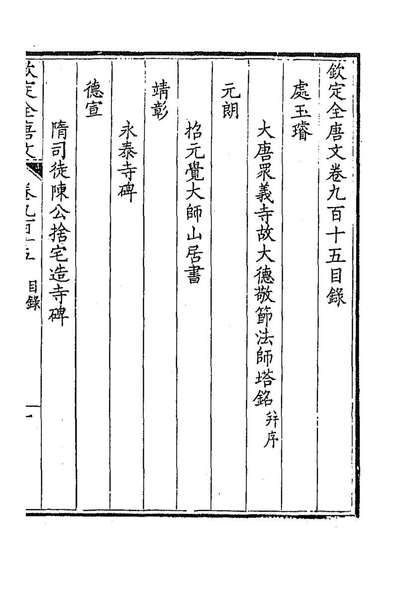 欽定全唐文卷九百十五目錄
處玉璿
大唐眾義寺故大德敬節法師塔銘并序
元朗
招元覺大師山居書
靖彰
永泰寺碑
德宣
隋司徒陳公捨宅造寺碑
欽定全唐文 卷九百十五 目錄 一